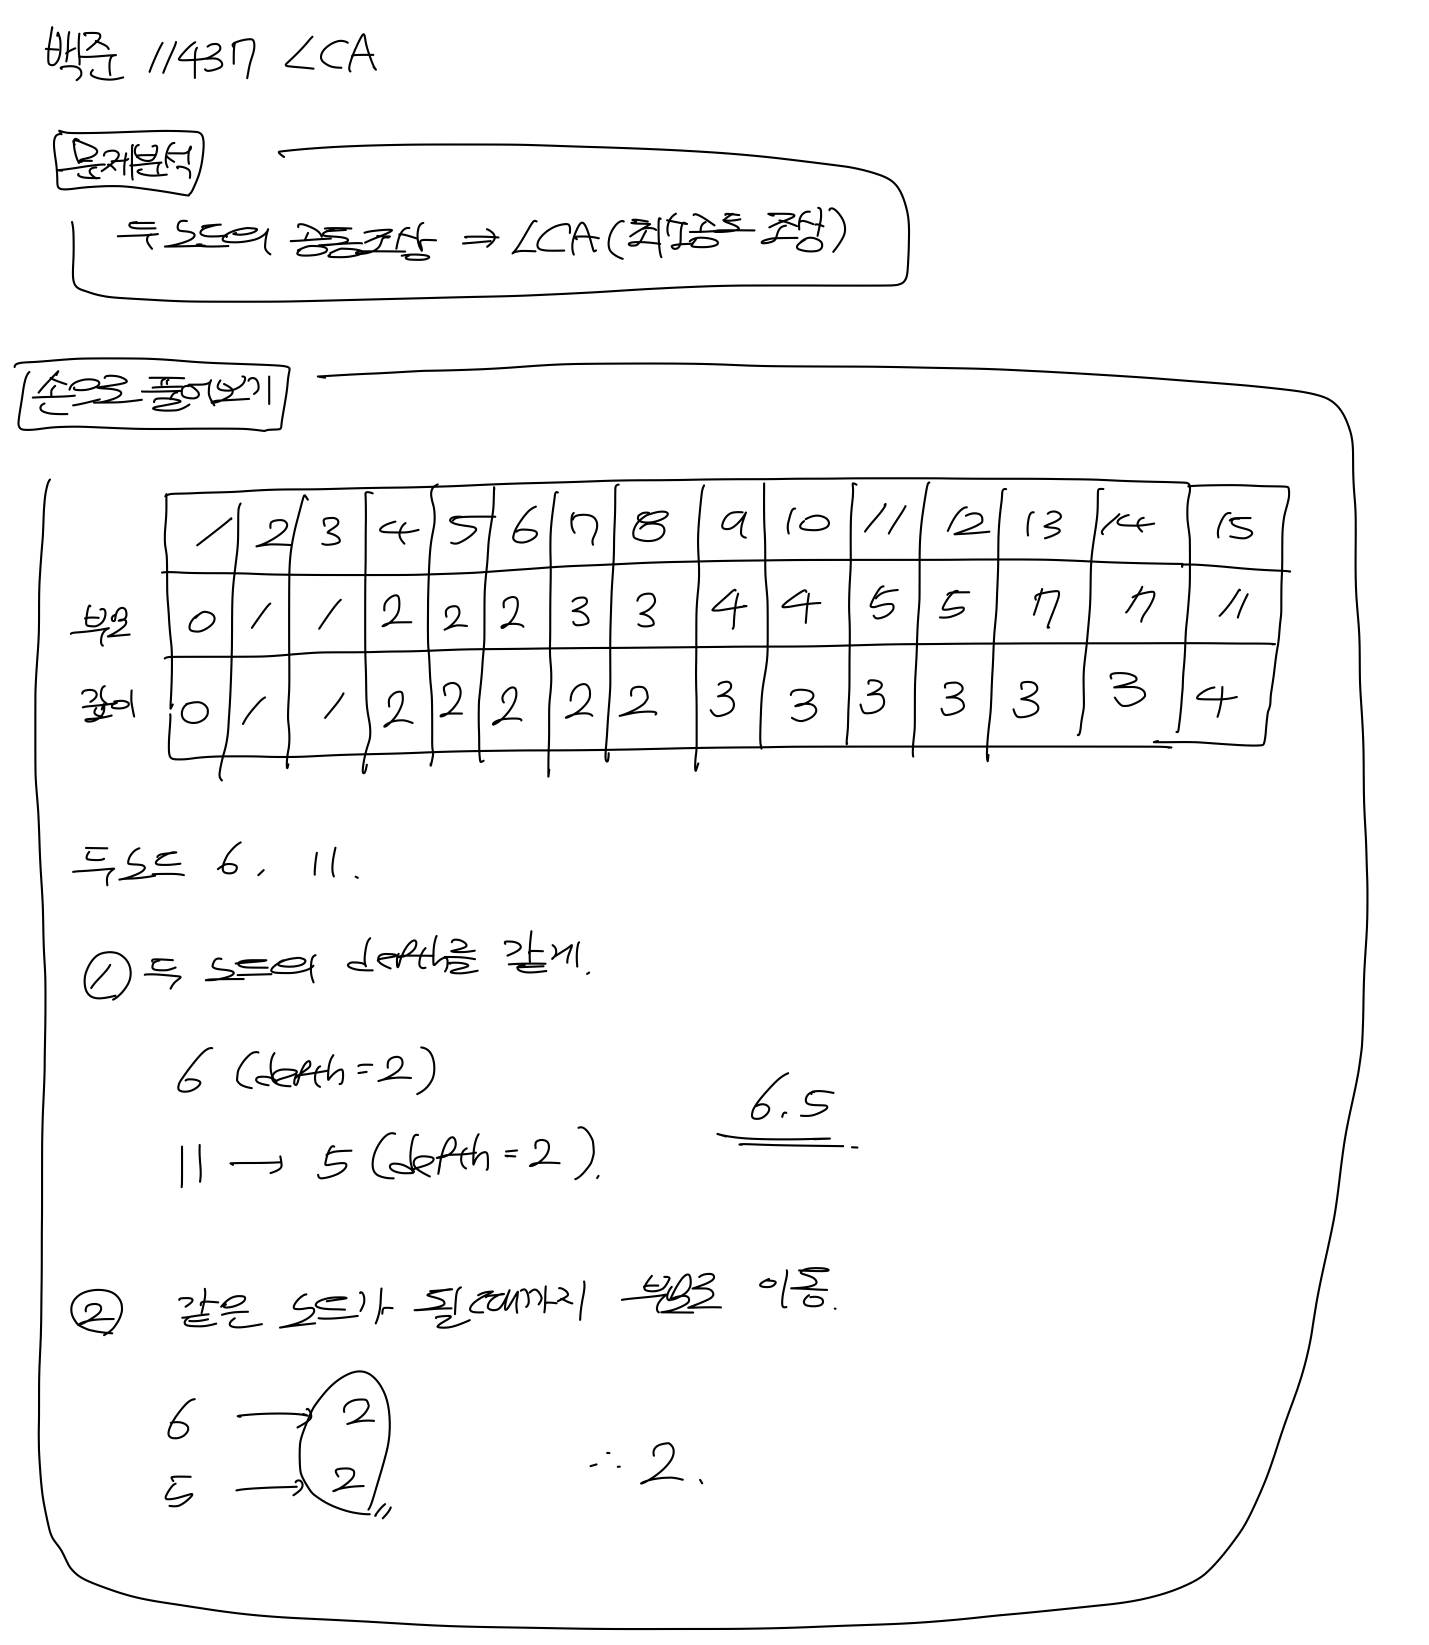 백준 11437 LCA
문제분석
두 노드의 공통조상 ⇒ LCA(최소공통 조상)
손으로 풀어보기
1 2 3 4 5 6 7 8 9 10 11 12 13 14 15
부모 0 1 1 2 2 2 3 3 4 4 5 5 7 7 11
깊이 0 1 1 2 2 2 2 2 3 3 3 3 3 3 4
두노드 6, 11.
① 두 노드의 depth를 같게.
6 (depth=2)
11 → 5 (depth=2).
6.5
② 같은 노드가 될때까지 부모로 이동.
6 → 2
5 → 2
∴ 2.